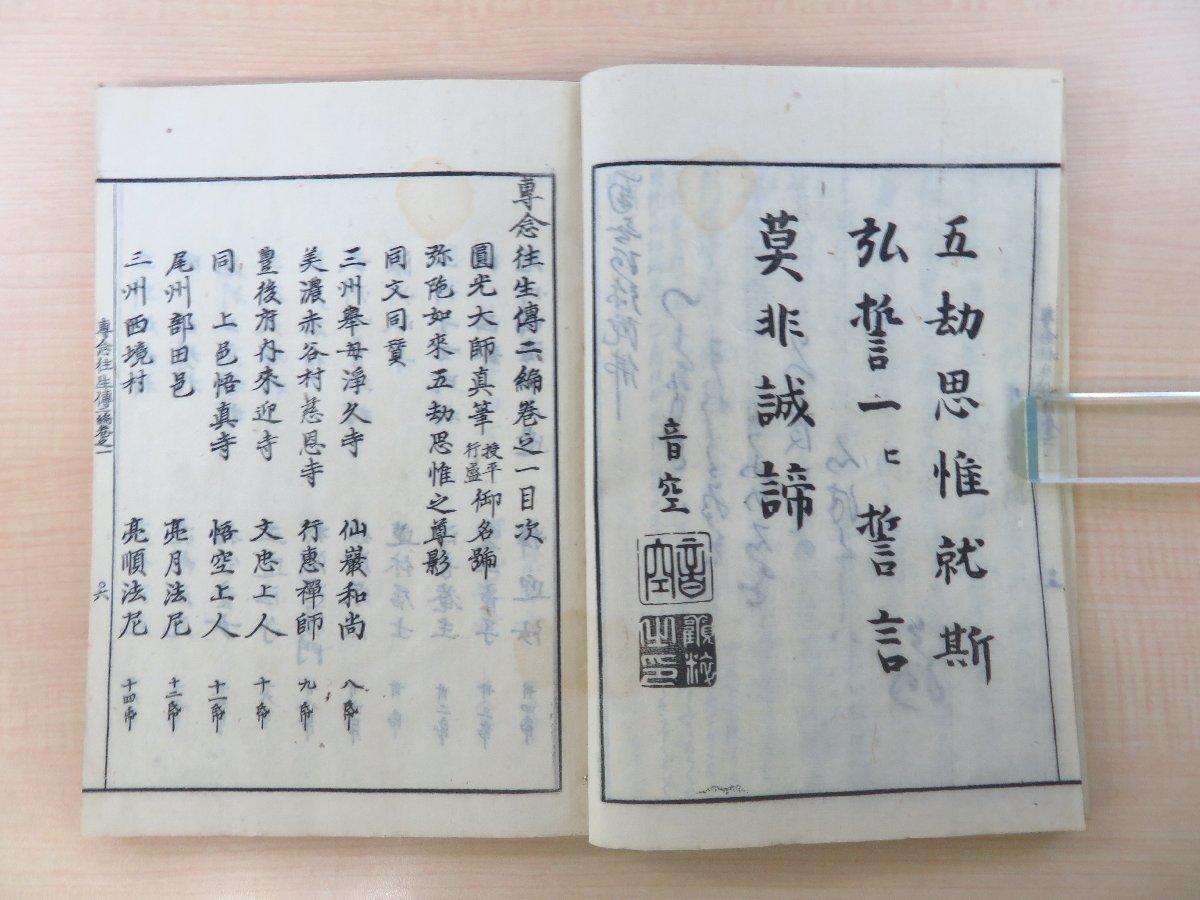 五劫思惟就斯
弘誓一ヒ誓言
莫非誠諦
音空
音空
專念往生傳二編卷之一目次
圓光大師真筆 授平行盛 御名號
弥陁如來五劫思惟之尊影
同文同賛
三州擧母淨久寺 仙巖和尚 八帋
美濃赤谷村慈恩寺 行惠禪師 九帋
豊後府内來迎寺 文忠上人 十帋
同上邑悟真寺 悟空上人 十一帋
尾州部田邑 亮月法尼 十二帋
三州西境村 亮順法尼 十四帋
專念往生傳二編卷之一